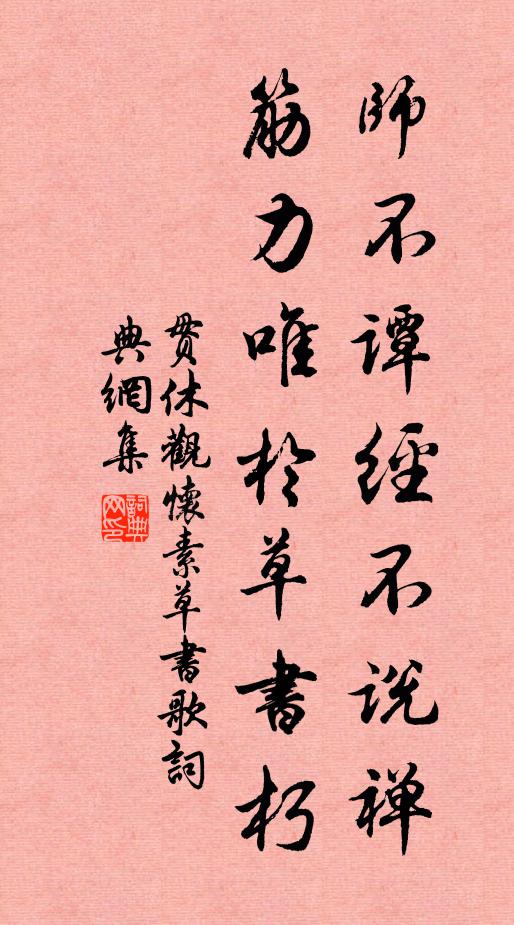 師不譚經不說禅
筋力唯於草書朽
貫休觀懷素草書歌詞
典網集
詞典網印